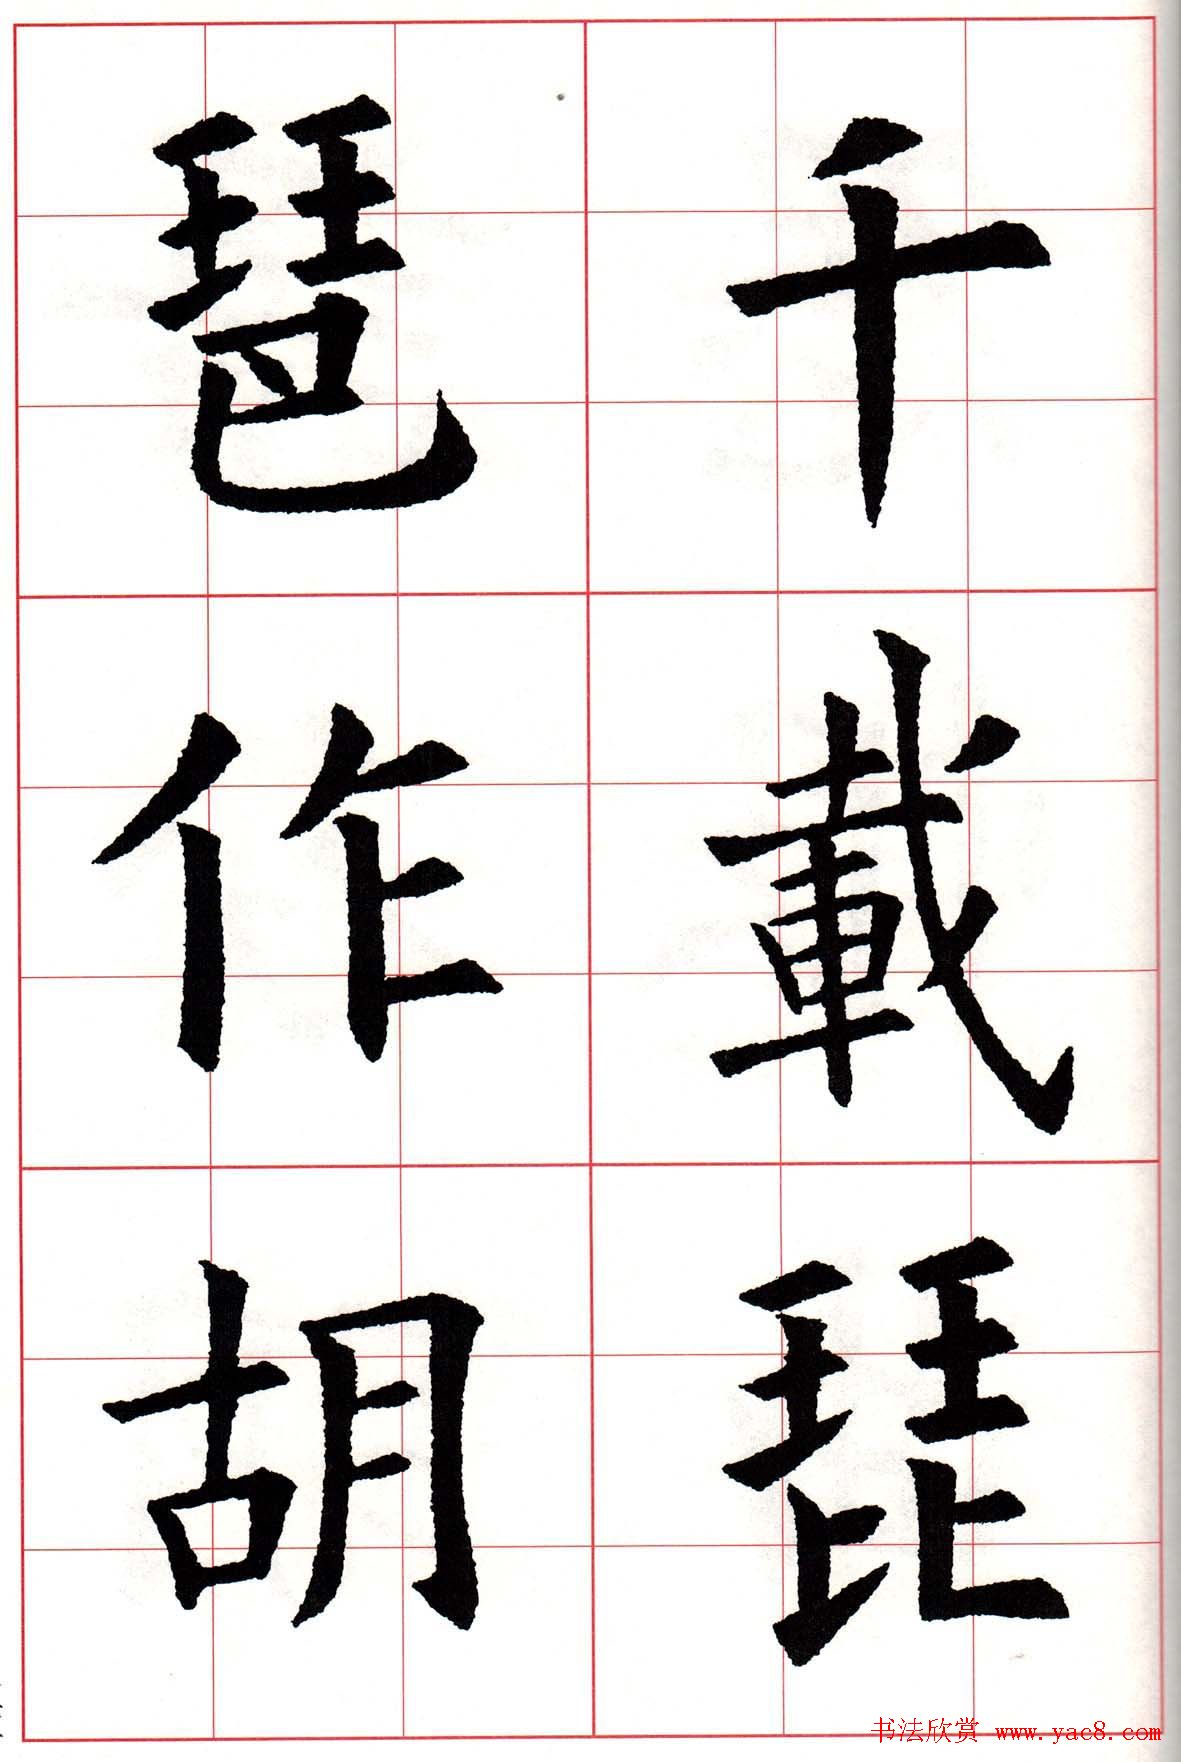 千載琵
琶作胡
书法欣赏 www.yac8.com